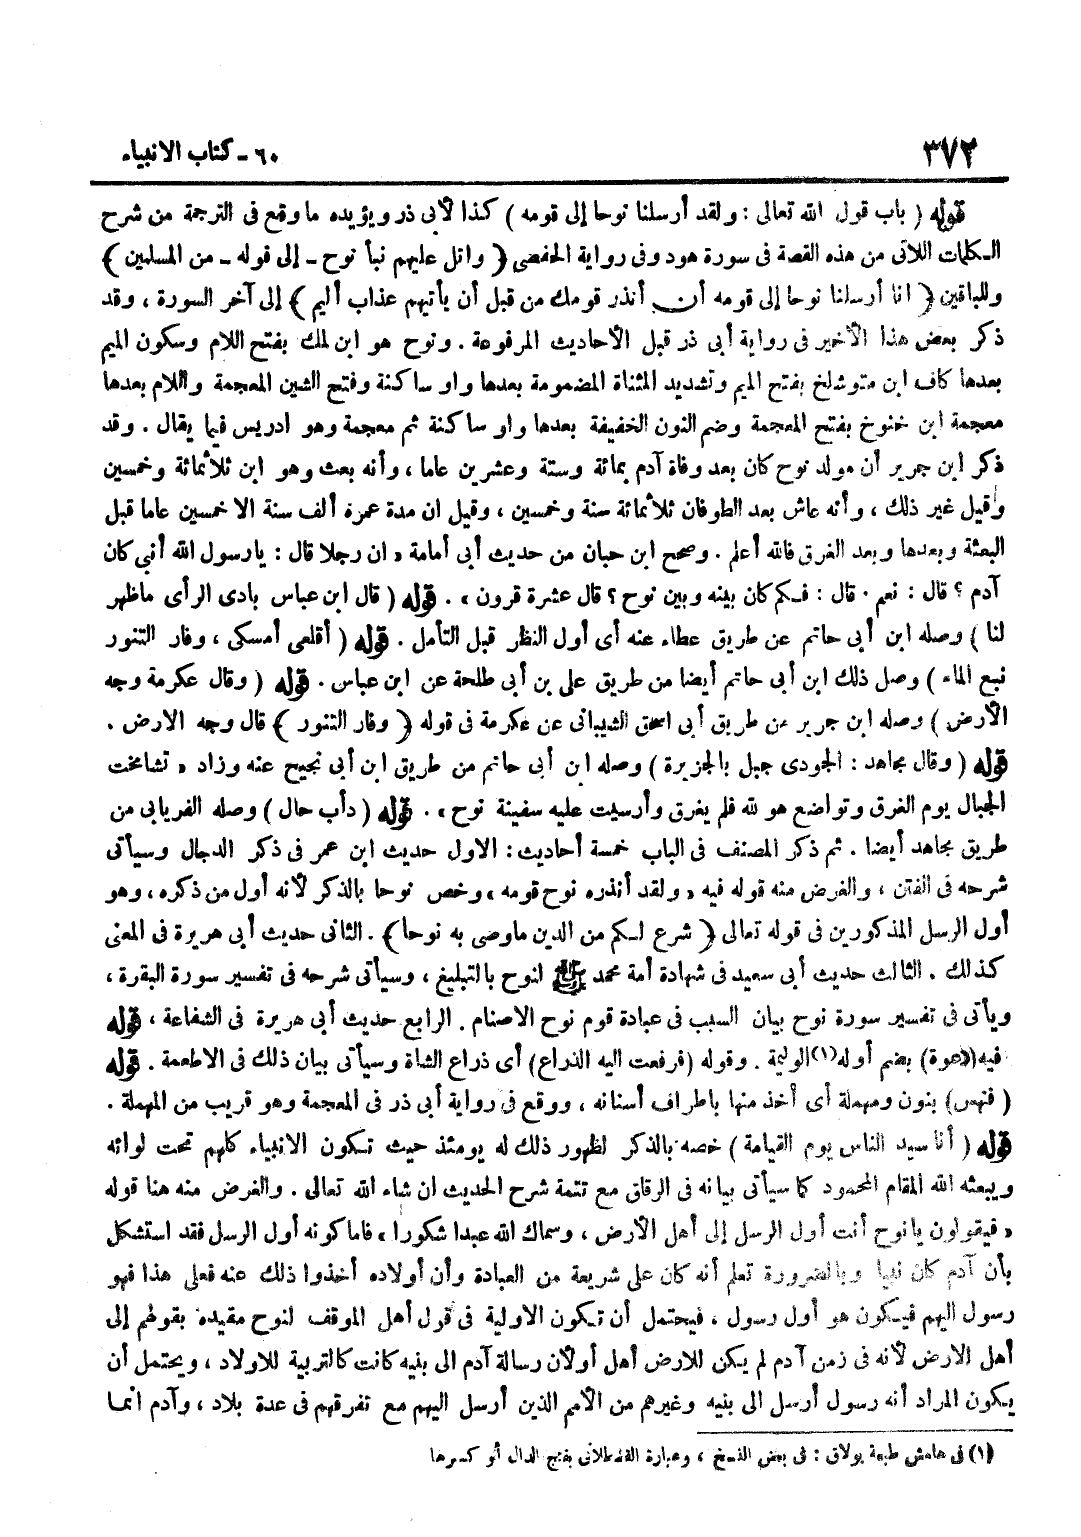 ٣٧٢
٦٠ - كتاب الانبياء
قوله ( باب قول الله تعالى : ولقد أرسلنا نوحا إلى قومه ) كذا لأبى ذر ويؤيده ماوقع فى الترجمة من شرح
الكلمات اللاتى من هذه القصة فى سورة هود وفى رواية الحفصى ﴿ واتل عليهم نبأ نوح - إلى قوله - من المسلمين ﴾
وللباقين ﴿ انا أرسلنا نوحا إلى قومه أن أنذر قومك من قبل أن يأتيهم عذاب أليم ﴾ إلى آخر السورة ، وقد
ذكر بعض هذا الأخير فى رواية أبى ذر قبل الأحاديث المرفوعة . ونوح هو ابن لمك بفتح اللام وسكون الميم
بعدها كاف ابن متوشلخ بفتح الميم وتشديد المثناة المضمومة بعدها واو ساكنة وفتح الشين المعجمة واللام بعدها
معجمة ابن خنوخ بفتح المعجمة وضم النون الخفيفة بعدها واو ساكنة ثم معجمة وهو ادريس فيما يقال . وقد
ذكر ابن جرير أن مولد نوح كان بعد وفاة آدم بمائة وستة وعشرين عاما ، وأنه بعث وهو ابن ثلاثمائة وخمسين
وقيل غير ذلك ، وأنه عاش بعد الطوفان ثلاثمائة سنة وخمسين ، وقيل ان مدة عمره ألف سنة الا خمسين عاما قبل
البعثة وبعدها وبعد الغرق فالله أعلم . وصحح ابن حبان من حديث أبى أمامة « ان رجلا قال : يارسول الله أنبى كان
آدم ؟ قال : نعم . قال : فكم كان بينه وبين نوح ؟ قال عشرة قرون » . قوله ( قال ابن عباس بادى الرأى ماظهر
لنا ) وصله ابن أبى حاتم عن طريق عطاء عنه أى أول النظر قبل التأمل . قوله ( أقلعى أمسكى ، وفار التنور
نبع الماء ) وصل ذلك ابن أبى حاتم أيضا من طريق على بن أبى طلحة عن ابن عباس . قوله ( وقال عكرمة وجه
الأرض ) وصله ابن جرير من طريق أبى اسحق الشيبانى عن عكرمة فى قوله ﴿ وفار التنور ﴾ قال وجه الارض .
قوله ( وقال مجاهد : الجودى جبل بالجزيرة ) وصله ابن أبى حاتم من طريق ابن أبى نجيح عنه وزاد « تشامخت
الجبال يوم الغرق وتواضع هو لله فلم يغرق وأرسيت عليه سفينة نوح » . قوله ( دأب حال ) وصله الفريابى من
طريق مجاهد أيضا . ثم ذكر المصنف فى الباب خمسة أحاديث : الاول حديث ابن عمر فى ذكر الدجال وسيأتى
شرحه فى الفتن ، والغرض منه قوله فيه « ولقد أنذره نوح قومه » وخص نوحا بالذكر لأنه أول من ذكره ، وهو
أول الرسل المذكورين فى قوله تعالى ﴿ شرع لكم من الدين ماوصى به نوحا ﴾ . الثانى حديث أبى هريرة فى المعنى
كذلك . الثالث حديث أبى سعيد فى شهادة أمة محمد ﷺ لنوح بالتبليغ ، وسيأتى شرحه فى تفسير سورة البقرة ،
ويأتى فى تفسير سورة نوح بيان السبب فى عبادة قوم نوح الاصنام . الرابع حديث أبى هريرة فى الشفاعة ، قوله
فيه (دعوة) بضم أوله (١) الوليمة . وقوله (فرفعت اليه الذراع) أى ذراع الشاة وسيأتى بيان ذلك فى الاطعمة . قوله
( فنهس) بنون ومهملة أى أخذ منها باطراف أسنانه ، ووقع فى رواية أبى ذر فى المعجمة وهو قريب من المهملة .
قوله ( أنا سيد الناس يوم القيامة ) خصه بالذكر لظهور ذلك له يومئذ حيث تكون الانبياء كلهم تحت لوائه
ويبعثه الله المقام المحمود كما سيأتى بيانه فى الرقاق مع تتمة شرح الحديث ان شاء الله تعالى . والغرض منه هنا قوله
« فيقولون يانوح أنت أول الرسل إلى أهل الأرض ، وسماك الله عبدا شكورا » فاما كونه أول الرسل فقد استشكل
بأن آدم كان نبيا وبالضرورة تعلم أنه كان على شريعة من العبادة وأن أولاده أخذوا ذلك عنه فعلى هذا فهو
رسول اليهم فيكون هو أول رسول ، فيحتمل أن تكون الاولية فى قول أهل الموقف لنوح مقيده بقولهم إلى
أهل الارض لأنه فى زمن آدم لم يكن للارض أهل أولان رسالة آدم الى بنيه كانت كالتربية للاولاد ، ويحتمل أن
يكون المراد أنه رسول أرسل الى بنيه وغيرهم من الأمم الذين أرسل اليهم مع تفرقهم فى عدة بلاد ، وآدم انما
(١) فى هامش طبعة بولاق : فى بعض النسخ ، وعبارة القسطلانى بفتح الدال أو كسرها